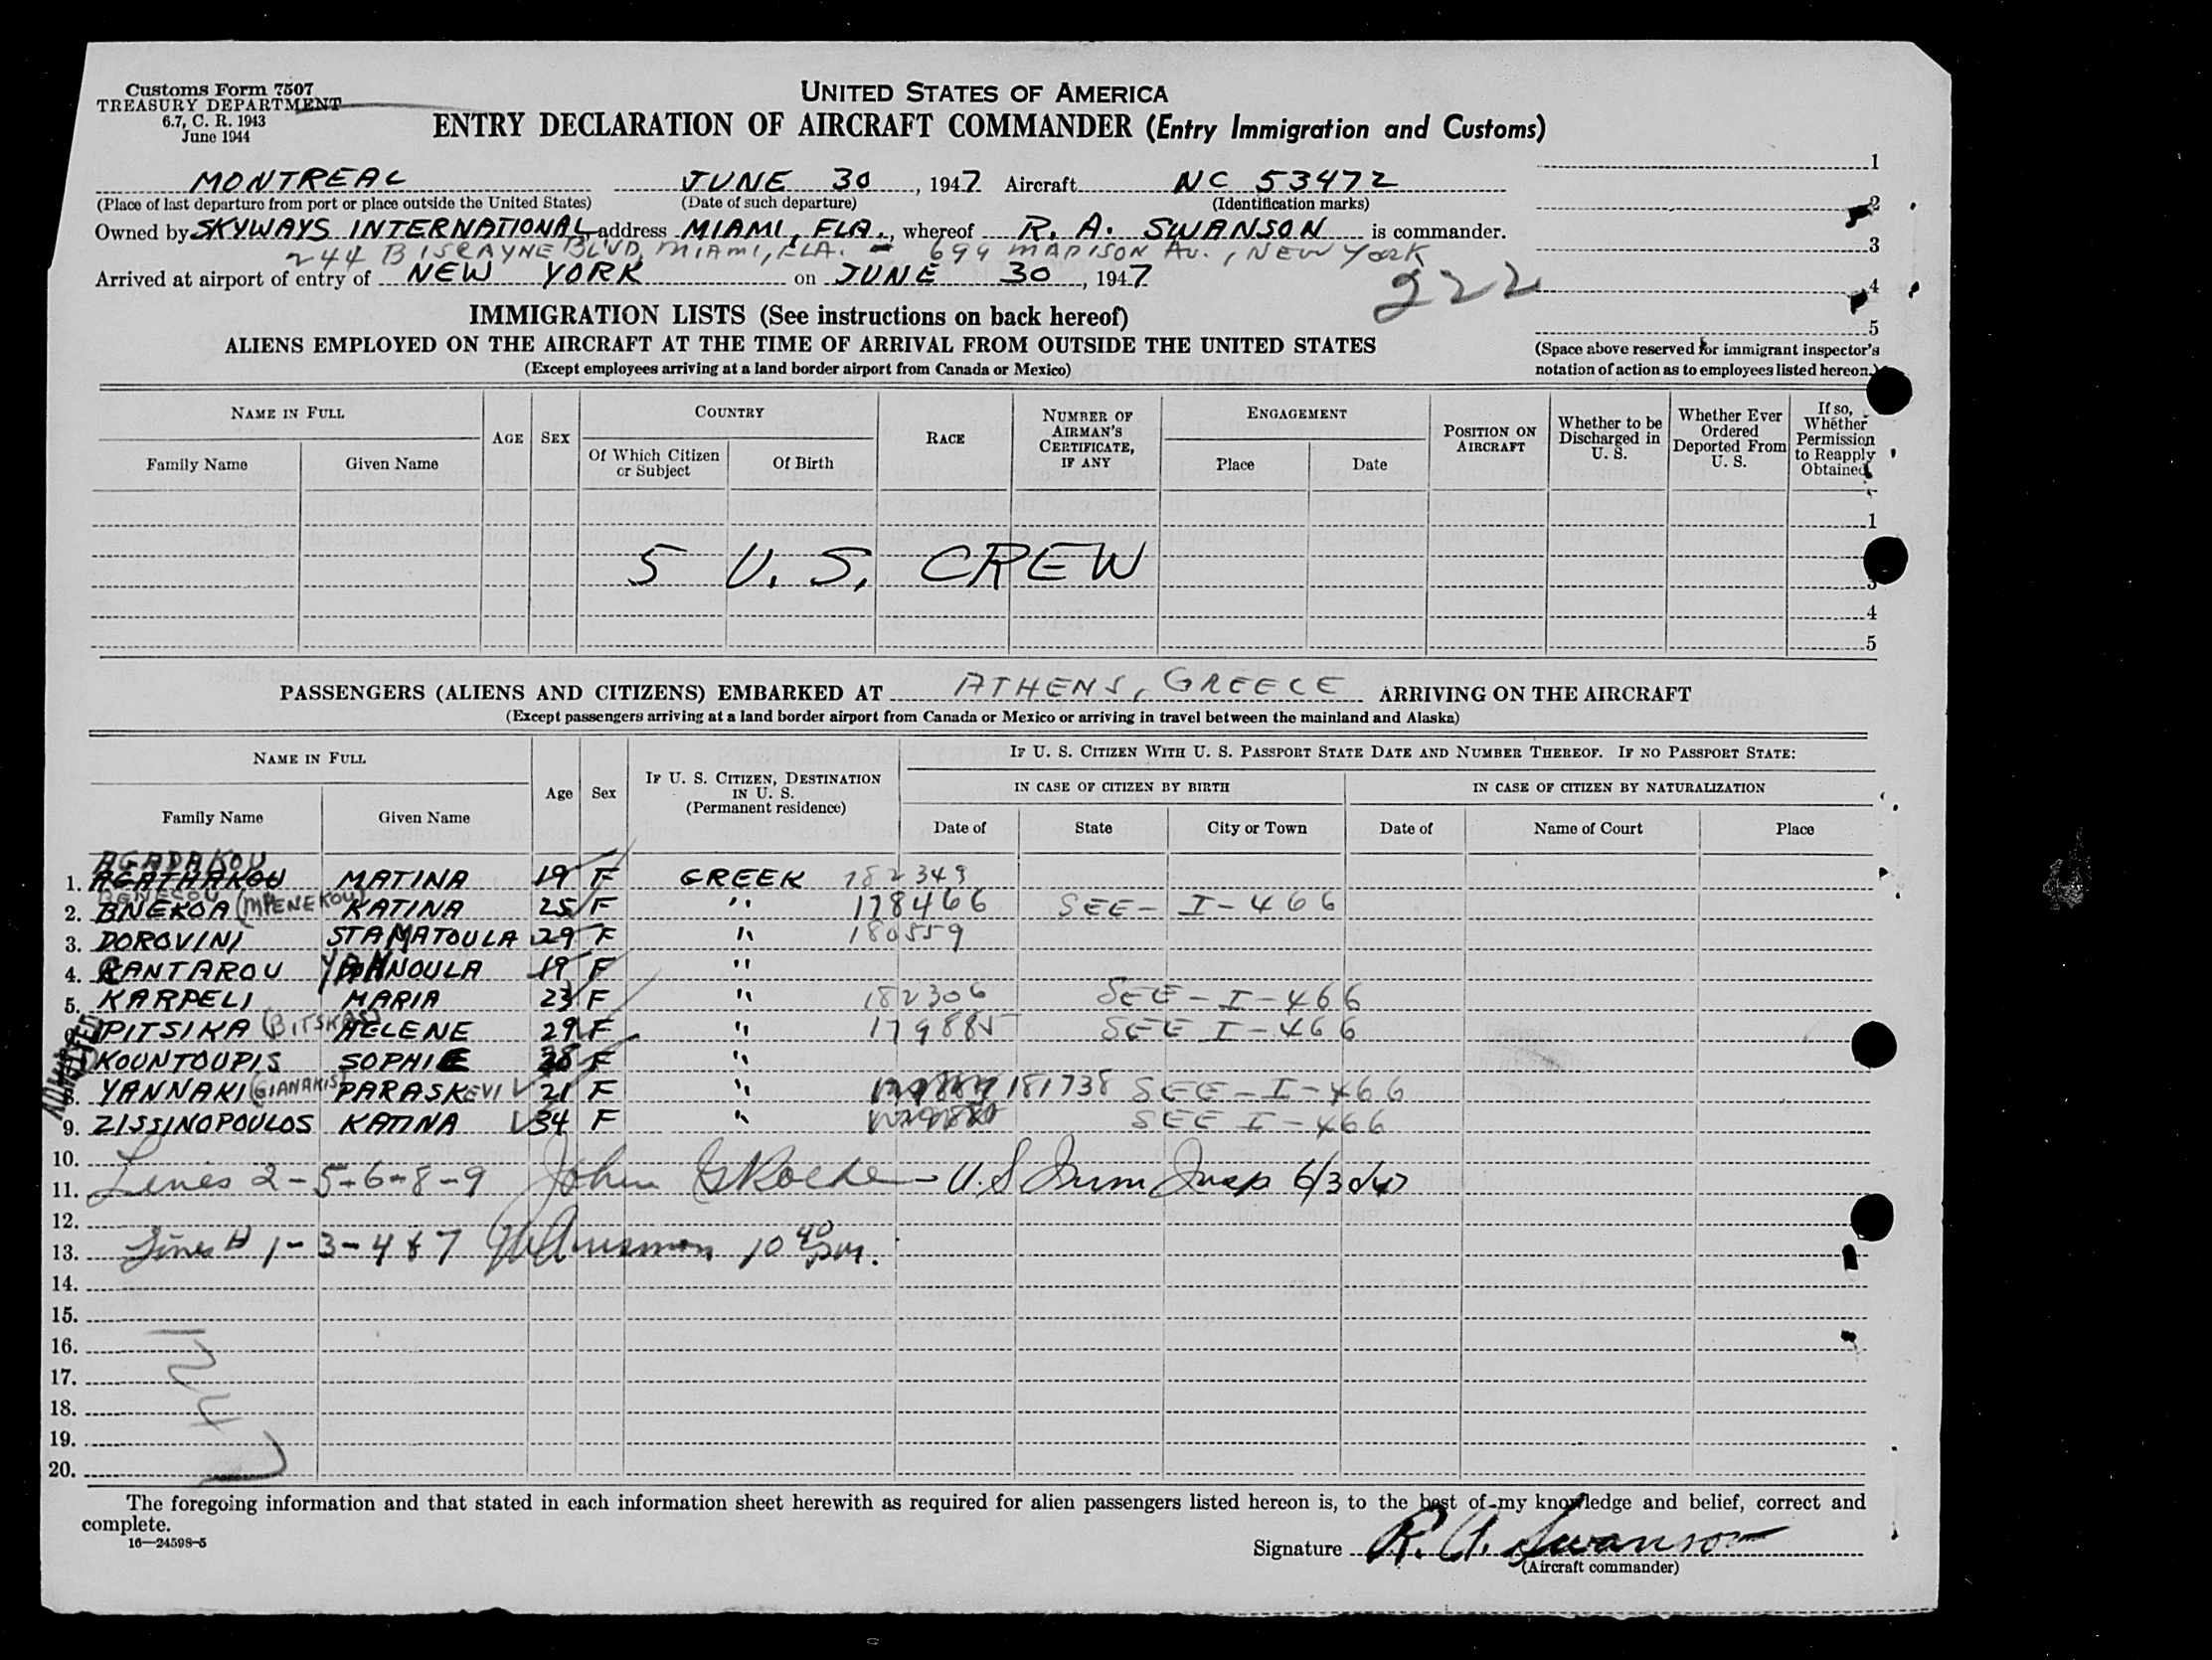 Customs Form 7507
TREASURY DEPARTMENT
6.7, C. R. 1943
June 1944
UNITED STATES OF AMERICA
ENTRY DECLARATION OF AIRCRAFT COMMANDER (Entry Immigration and Customs)
MONTREAL JUNE 30, 1947 Aircraft NC 53472
(Place of last departure from port or place outside the United States) (Date of such departure) (Identification marks)
Owned by SKYWAYS INTERNATIONAL address MIAMI, FLA., whereof R. A. SWANSON is commander.
244 BISCAYNE BLVD, MIAMI, FLA. - 699 MADISON AV., NEW YORK
Arrived at airport of entry of NEW YORK on JUNE 30, 1947
222
1
2
3
4
5
(Space above reserved for immigrant inspector's
notation of action as to employees listed hereon.)
IMMIGRATION LISTS (See instructions on back hereof)
ALIENS EMPLOYED ON THE AIRCRAFT AT THE TIME OF ARRIVAL FROM OUTSIDE THE UNITED STATES
(Except employees arriving at a land border airport from Canada or Mexico)
NAME IN FULL
Family Name Given Name
AGE SEX
COUNTRY
Of Which Citizen or Subject Of Birth
RACE
NUMBER OF AIRMAN'S CERTIFICATE, IF ANY
ENGAGEMENT
Place Date
POSITION ON AIRCRAFT
Whether to be Discharged in U. S.
Whether Ever Ordered Deported From U. S.
If so, Whether Permission to Reapply Obtained
1
5 U. S. CREW
3
4
5
PASSENGERS (ALIENS AND CITIZENS) EMBARKED AT ATHENS, GREECE ARRIVING ON THE AIRCRAFT
(Except passengers arriving at a land border airport from Canada or Mexico or arriving in travel between the mainland and Alaska)
NAME IN FULL
Family Name Given Name
Age Sex
IF U. S. CITIZEN, DESTINATION IN U. S. (Permanent residence)
IF U. S. CITIZEN WITH U. S. PASSPORT STATE DATE AND NUMBER THEREOF. IF NO PASSPORT STATE:
IN CASE OF CITIZEN BY BIRTH IN CASE OF CITIZEN BY NATURALIZATION
Date of State City or Town Date of Name of Court Place
AGADAKOU
1. AGATHAKOU MATINA 19 F GREEK 182349
BENECOU
2. BNEKOA (MPENEKOU) KATINA 25 F " 178466 SEE - I-466
3. DOROVINI STAMATOULA 29 F " 180559
4. CANTAROU YANNOULA 19 F "
5. KARPELI MARIA 23 F " 182306 SEE - I-466
PITSIKA (BITSKAS) HELENE 29 F " 179885 SEE I-466
KOUNTOUPIS SOPHIE 38 F "
8. YANNAKI (GIANAKIS) PARASKEVI 21 F " 181738 SEE - I-466
9. ZISSINOPOULOS KATINA 34 F " SEE I-466
ADMITTED
10.
11. Lines 2-5-6-8-9 John - U.S Imm Insp 6/30/47
12.
13. Lines # 1-3-4 & 7 10 40 pm.
14.
15.
16.
17.
18.
19.
20.
The foregoing information and that stated in each information sheet herewith as required for alien passengers listed hereon is, to the best of my knowledge and belief, correct and
complete.
16—24598-5
Signature R. A. Swanson
(Aircraft commander)